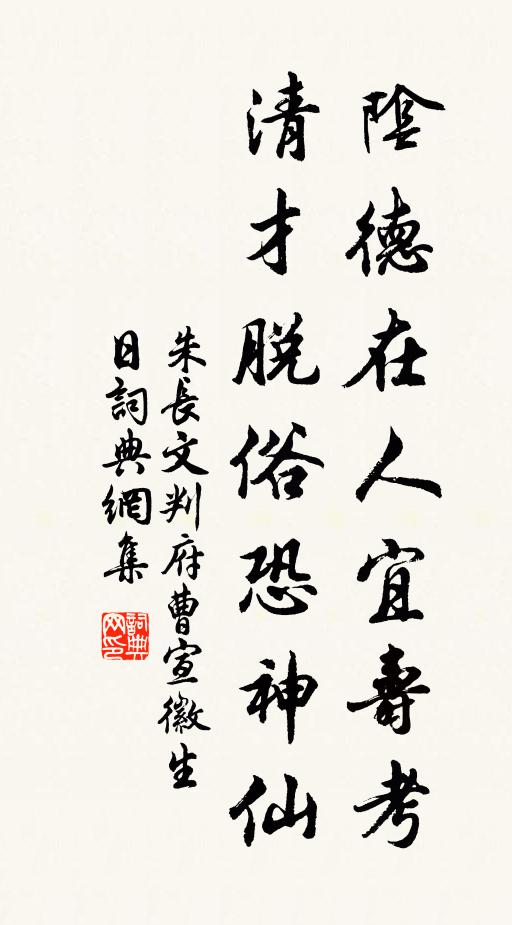 陰德在人宜壽考
清才脫俗恐神仙
朱長文判府曹宣徽生
日詞典網集
詞典网印